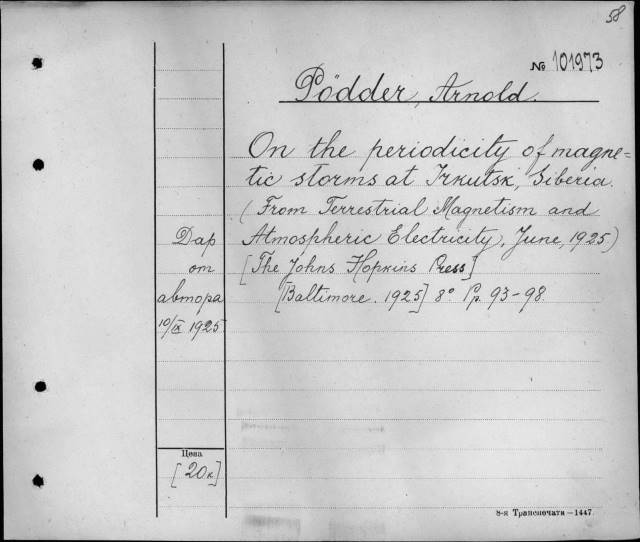 58
№ 101973
Pödder, Arnold.
On the periodicity of magne=
tic storms at Irkutsk, Siberia.
(From Terrestrial Magnetism and
Atmospheric Electricity, June, 1925.)
[The Johns Hopkins Press]
[Baltimore. 1925] 8° Pp. 93-98.
Дар
от
автора
10/IX 1925
Цена
[20к]
8-я Транспечати—1447